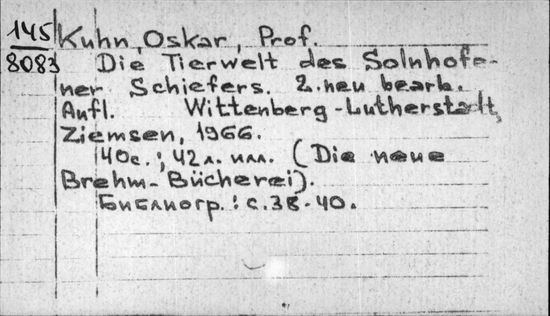 145 Kuhn, Oskar, Prof.
8083 Die Tierwelt des Solnhofe-
ner Schiefers. 2. neu bearb.
Aufl. Wittenberg-Lutherstadt,
Ziemsen, 1966.
40с.; 42 л. илл. (Die neue
Brehm-Bücherei).
Библиогр.: с. 38-40.